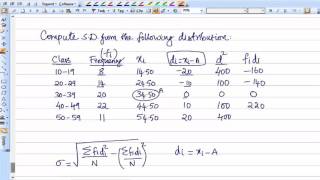 Compute S.D from the following distribution.
(fi)
Class Frequency xi di=xi-A d² fidi
10-19 8 14.50 -20 400 -160
20-29 14 24.50 -10 100 -140
30-39 20 34.50 A 0 0 0
40-49 22 44.50 10 100 220
50-59 11 54.50 20 400
σ = √ Σfidi² / N - (Σfidi / N)² di = xi-A